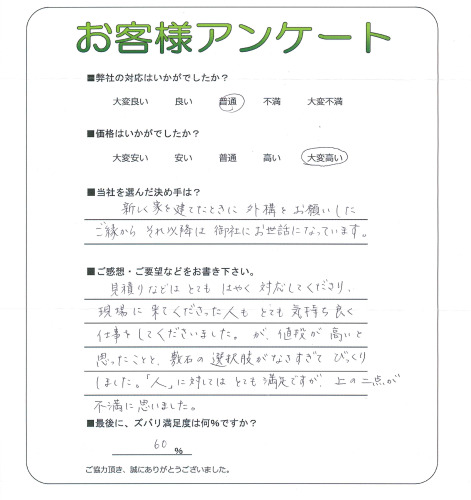 お客様アンケート
■弊社の対応はいかがでしたか？
大変良い 良い 普通 不満 大変不満
■価格はいかがでしたか？
大変安い 安い 普通 高い 大変高い
■当社を選んだ決め手は？
新しく家を建てたときに外構をお願いした
ご縁からそれ以降は御社にお世話になっています。
■ご感想・ご要望などをお書き下さい。
見積りなどはとてもはやく対応してくださり、
現場に来てくださった人もとても気持ち良く
仕事をしてくださいました。が、値段が高いと
思ったことと、敷石の選択肢がなさすぎてびっくり
しました。「人」に対してはとても満足ですが、上の二点が
不満に思いました。
■最後に、ズバリ満足度は何%ですか？
60 %
ご協力頂き、誠にありがとうございました。